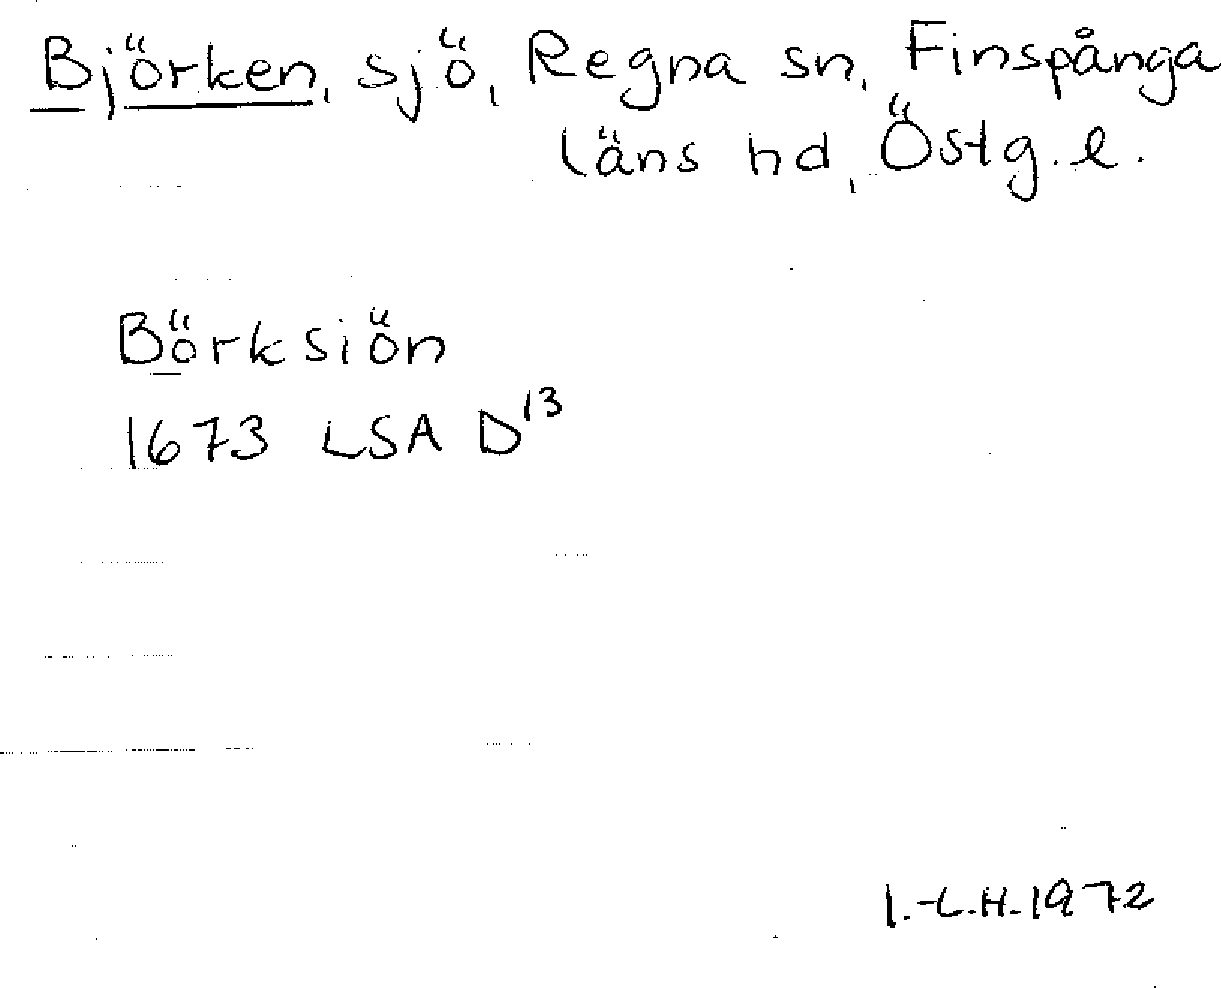 Björken, sjö, Regna sn, Finspånga
läns hd, Östg. l.
Börksiön
1673 LSA D13
I.-L.H. 1972